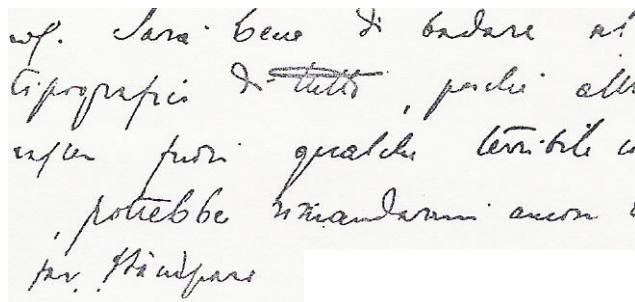 Sarà bene di badare ai
tipografici di tutto, perché
fuori qualche terribile
, potrebbe rimandarmi ancora
far stampare